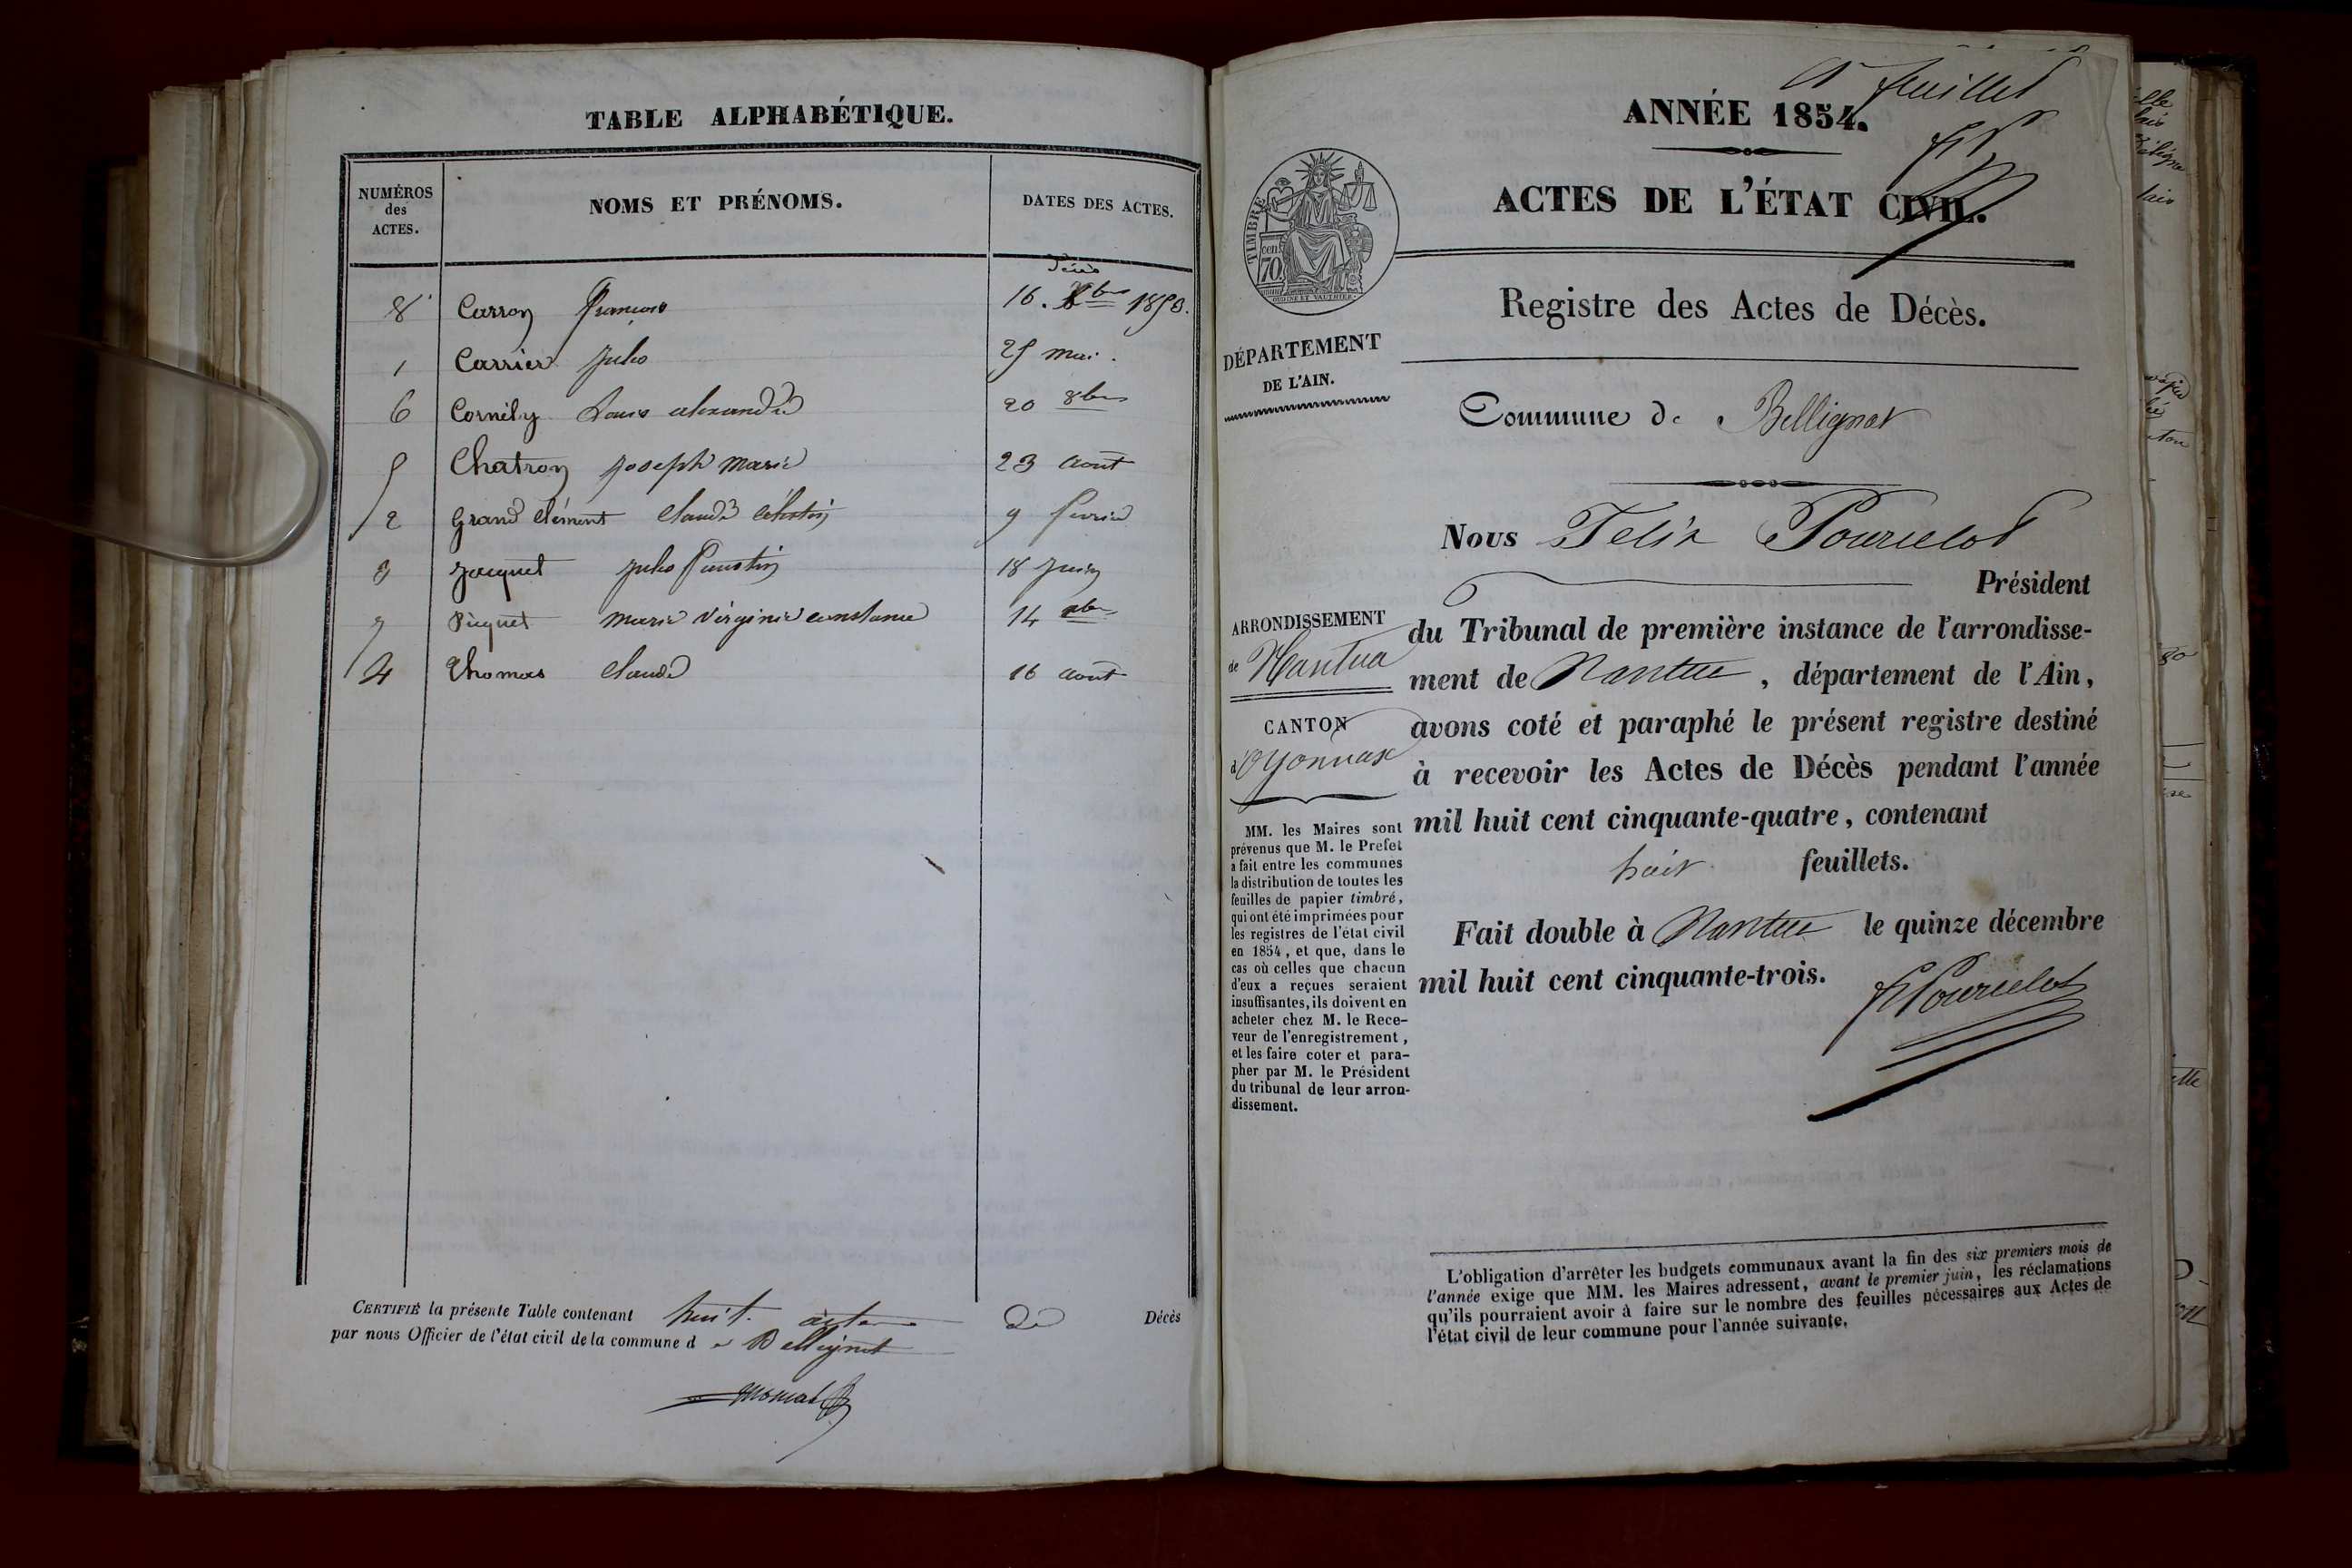 TABLE ALPHABÉTIQUE.
NUMÉROS
des
ACTES.
NOMS ET PRÉNOMS.
DATES DES ACTES.
8 Carron François 16. Xbre 1853.
1 Carrier Jules 25 mai.
6 Cornily Louis alexandre 20 8bre
5 Chatron Joseph Marie 23 aout
2 Grand Clément Claude Célestin 9
3 Jacquet Jules faustin 18 Juin
7 Piquet Marie Virginie constance 14
4 Thomas Claude 16 aout
CERTIFIÉ la présente Table contenant huit actes de Décès
par nous Officier de l'état civil de la commune de Bellignat
1er feuillet
ANNÉE 1854.
ACTES DE L'ÉTAT CIVIL.
TIMBRE
70
cen.
Registre des Actes de Décès.
DÉPARTEMENT
DE L'AIN.
Commune de Bellignat
Nous Felix Pourcelot
Président
ARRONDISSEMENT
de Nantua
CANTON
d'Oyonnax
du Tribunal de première instance de l'arrondisse-
ment de Nantua, département de l'Ain,
avons coté et paraphé le présent registre destiné
à recevoir les Actes de Décès pendant l'année
mil huit cent cinquante-quatre, contenant
huit feuillets.
Fait double à Nantua le quinze décembre
mil huit cent cinquante-trois.
F Pourcelot
MM. les Maires sont
prévenus que M. le Prefet
a fait entre les communes
la distribution de toutes les
feuilles de papier timbré,
qui ont été imprimées pour
les registres de l'état civil
en 1854, et que, dans le
cas où celles que chacun
d'eux a reçues seraient
insuffisantes, ils doivent en
acheter chez M. le Rece-
veur de l'enregistrement,
et les faire coter et para-
pher par M. le Président
du tribunal de leur arron-
dissement.
L'obligation d'arrêter les budgets communaux avant la fin des six premiers mois de
l'année exige que MM. les Maires adressent, avant le premier juin, les réclamations
qu'ils pourraient avoir à faire sur le nombre des feuilles nécessaires aux Actes de
l'état civil de leur commune pour l'année suivante.